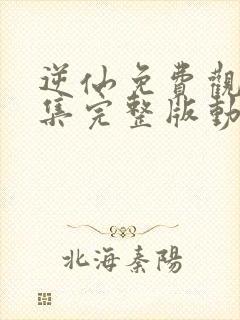 逆仙免費觀
集完整版動
北海秦陽